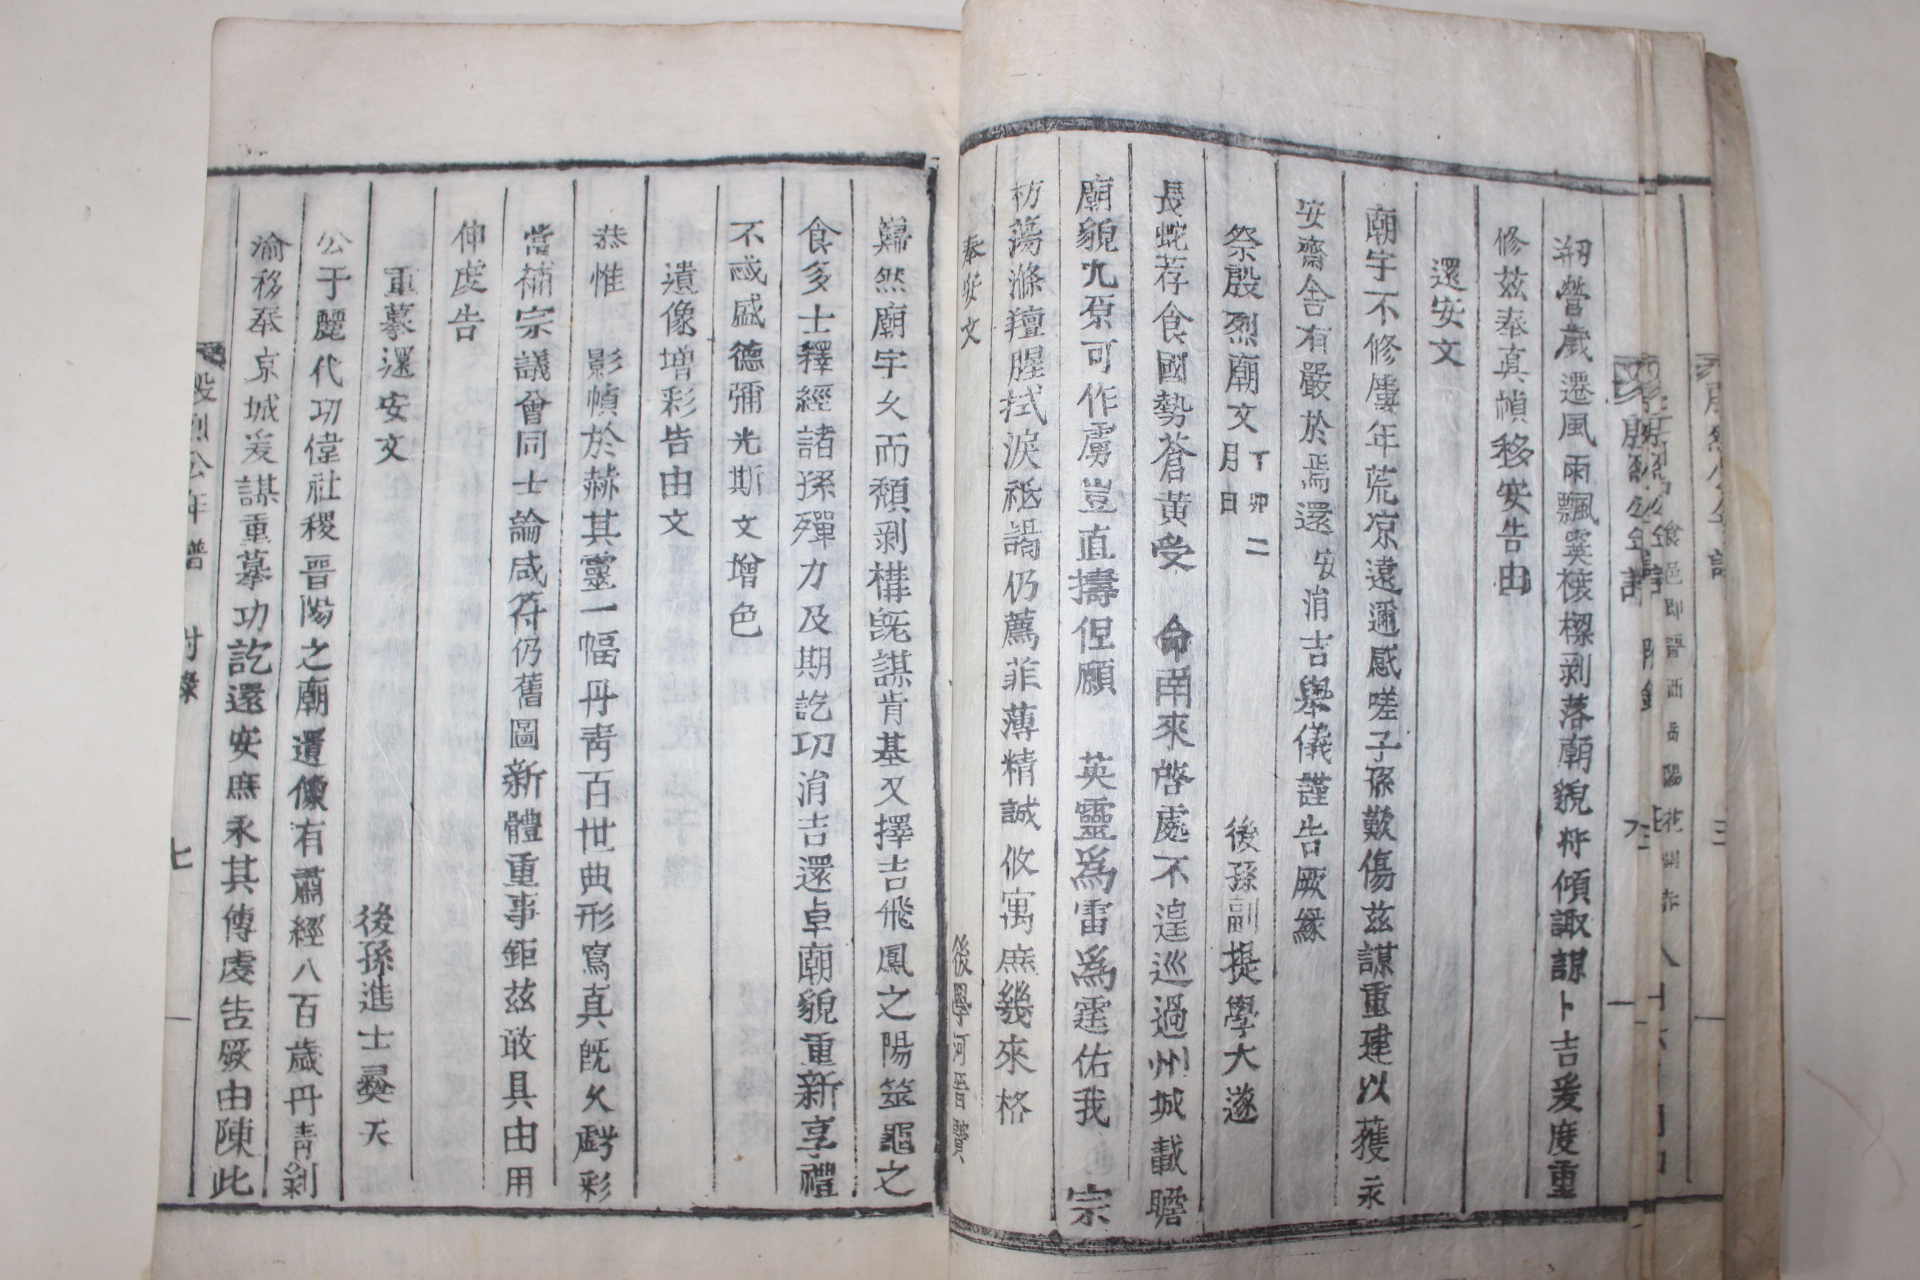 刱營歲遷風雨飄㒹棱樑剥落廟貌將傾諏謀卜吉爰度重
修玆奉真幀移安告由
還安文
廟宇不修屢年荒凉遠邇感嗟子孫歎傷玆謀重建以獲永
安齋舍有嚴於焉還安涓吉舉儀謹告厥緣
祭殷烈廟文 丁卯二月日 後孫副提學大遂
長蛇荐食國勢蒼黃受 命南來啓處不遑巡過州城載瞻
廟貌九原可作虜豈直擣但願 英靈爲雷爲霆佑我 宗
祊蕩滌羶腥拭淚祗謁仍薦菲薄精誠攸寓庶幾來格
奉安文 後學河晋賢
巋然廟宇久而頹剥構旣謀肯基又擇吉飛鳳之陽筮龜之
食多士釋經諸孫殫力及期訖功涓吉還卓廟貌重新享禮
不忒盛德彌光斯文增色
遺像增彩告由文
恭惟 影幀於赫其靈一幅丹靑百世典形寫真旣久虧彩
當補宗議僉同士論咸符仍舊圖新體重事鉅玆敢具由用
伸虔告
重摹還安文 後孫進士彛天
公于麗代功偉社稷晋陽之廟遺像有肅經八百歲丹青剥
渝移奉京城爰謀重摹功訖還安庶永其傳虔告厥由陳此
殷烈公年譜 付錄 七